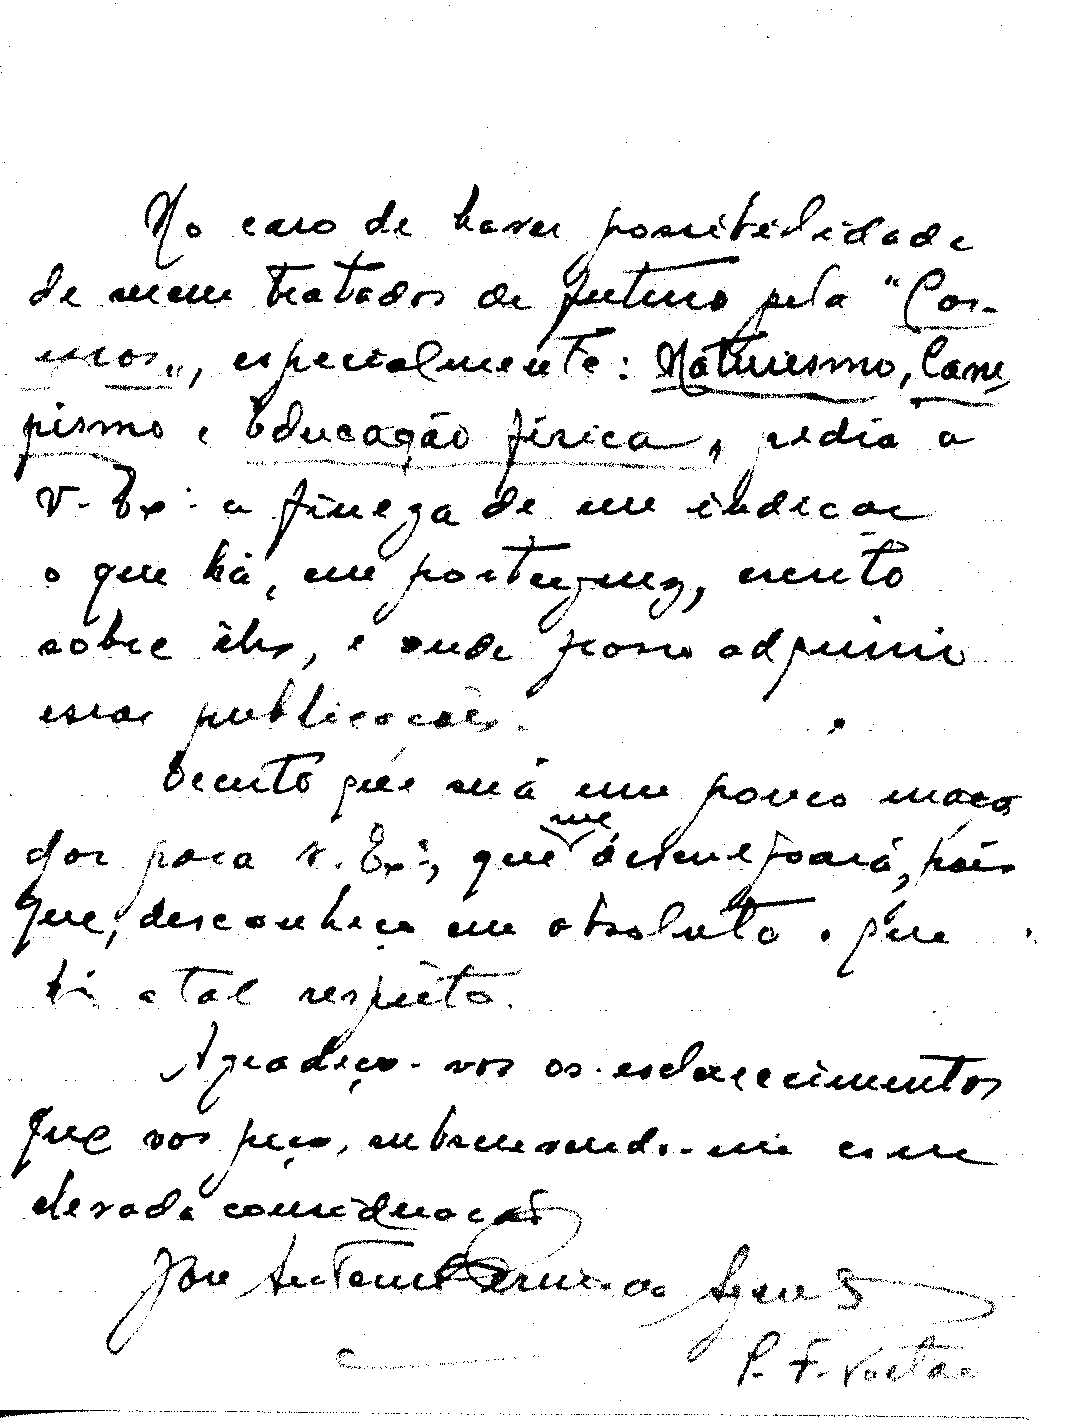 No caso de haver possibilidade
de serem tratados de futuro pela "Cos-
mos", especialmente: Naturismo, Cam
pismo e Educação física, pedia a
V. Exª a fineza de me indicar
o que há, em portuguez, escrito
sobre êles, e onde posso adquirir
essas publicações.
Decerto que será um pouco maça
dor para V. Exª, que me desculpará, pois
que, desconheço em absoluto o que
há a tal respeito.
Agradeço-vos os esclarecimentos
que vos peço, subscrevendo-me com
elevada consideração
José Antonio
P. F. Voltar